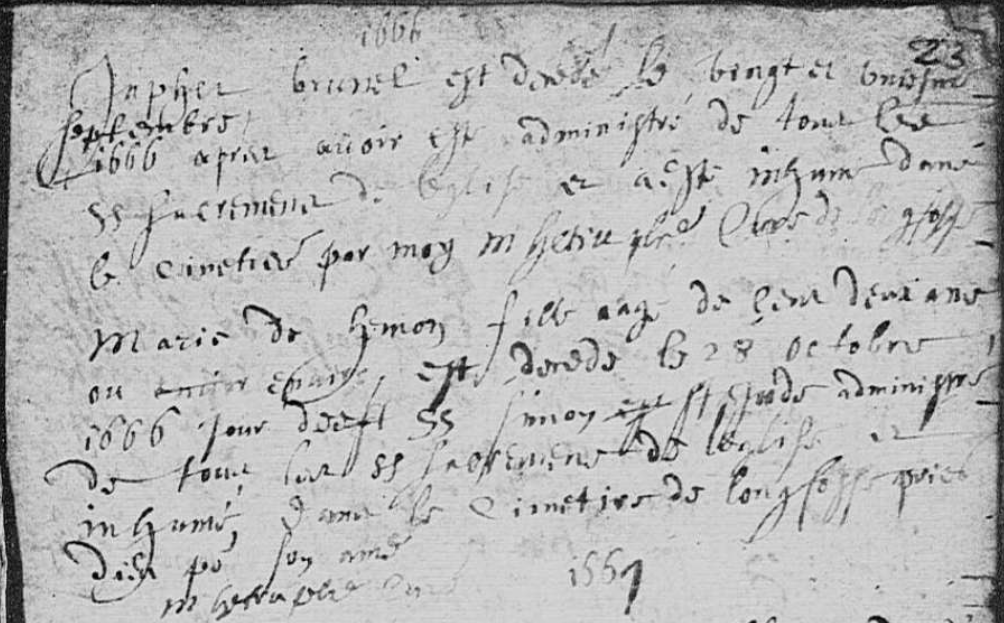 1666
23
Japhet brunel est decede le vingt et uniesme
septembre
1666 apres avoir este administré de tous les
SS sacremens de leglise et a esté inhumé dans
le cimetiere par moy M hetru pbre Curé de longfosse
Marie de hemon fille aagé de cent deux ans
ou environ est decede le 28 octobre
1666 jour de feste SS simon et st Jude administré
de tous les SS sacremens de leglise et
inhumé dans le Cimetire de longfosse pries
dieu po son ame
M hetru pbre Curé
1667